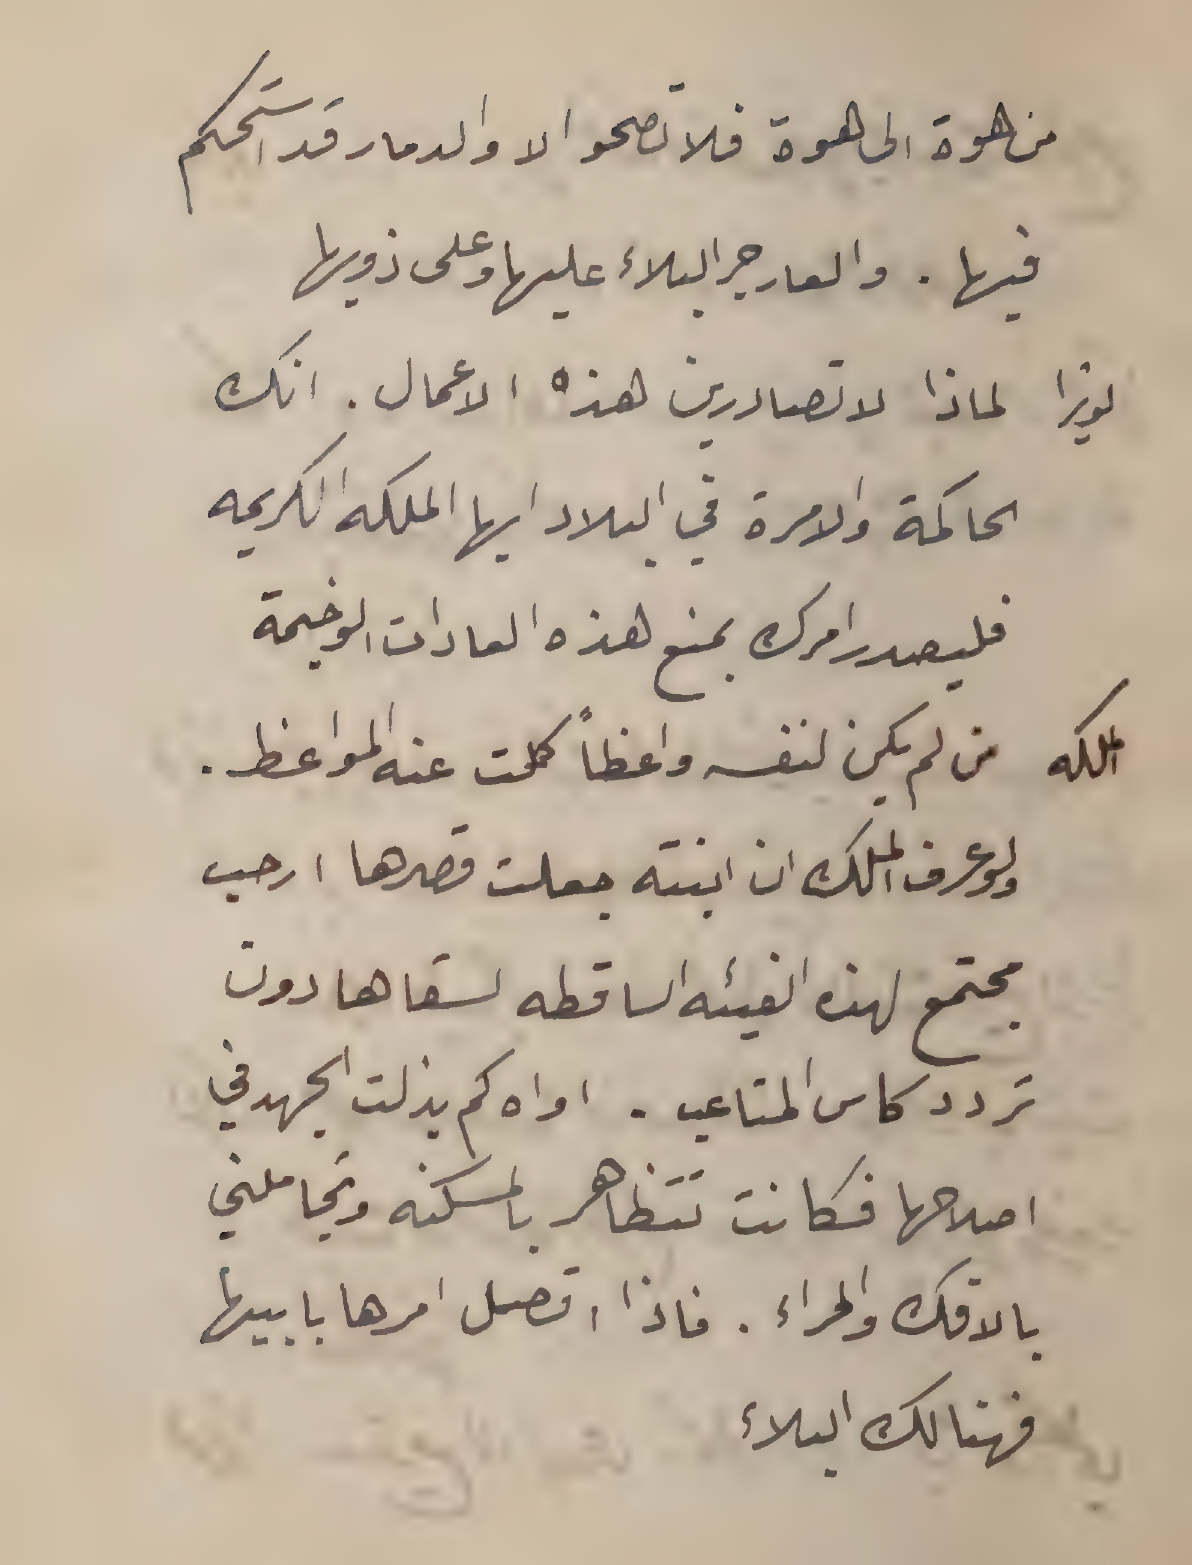 من هوة الى هوة فلا تصحو الا والدمار قد استحكم
فيها . والعار جر البلاء عليها وعلى ذويها
لويزا لماذا لا تصادرين هذه الاعمال . انك
الحاكمة والامرة في البلاد ايها الملكه الكريمه
فليصدر امرك بمنع هذه العادات الوخيمة
الملكه من لم يكن لنفسه واعظاً كلت عنه المواعظ .
ولو عرف الملك ان ابنته جعلت قصرها ارحب
مجتمع لهذه الفيئه الساقطه لسقاها دون
تردد كاس المتاعب . اواه كم بذلت الجهد في
اصلاحها فكانت تتظاهر بالمسكنه وتجاملني
بالافك والمراء . فاذا اتصل امرها بابيها
فهنالك البلاء